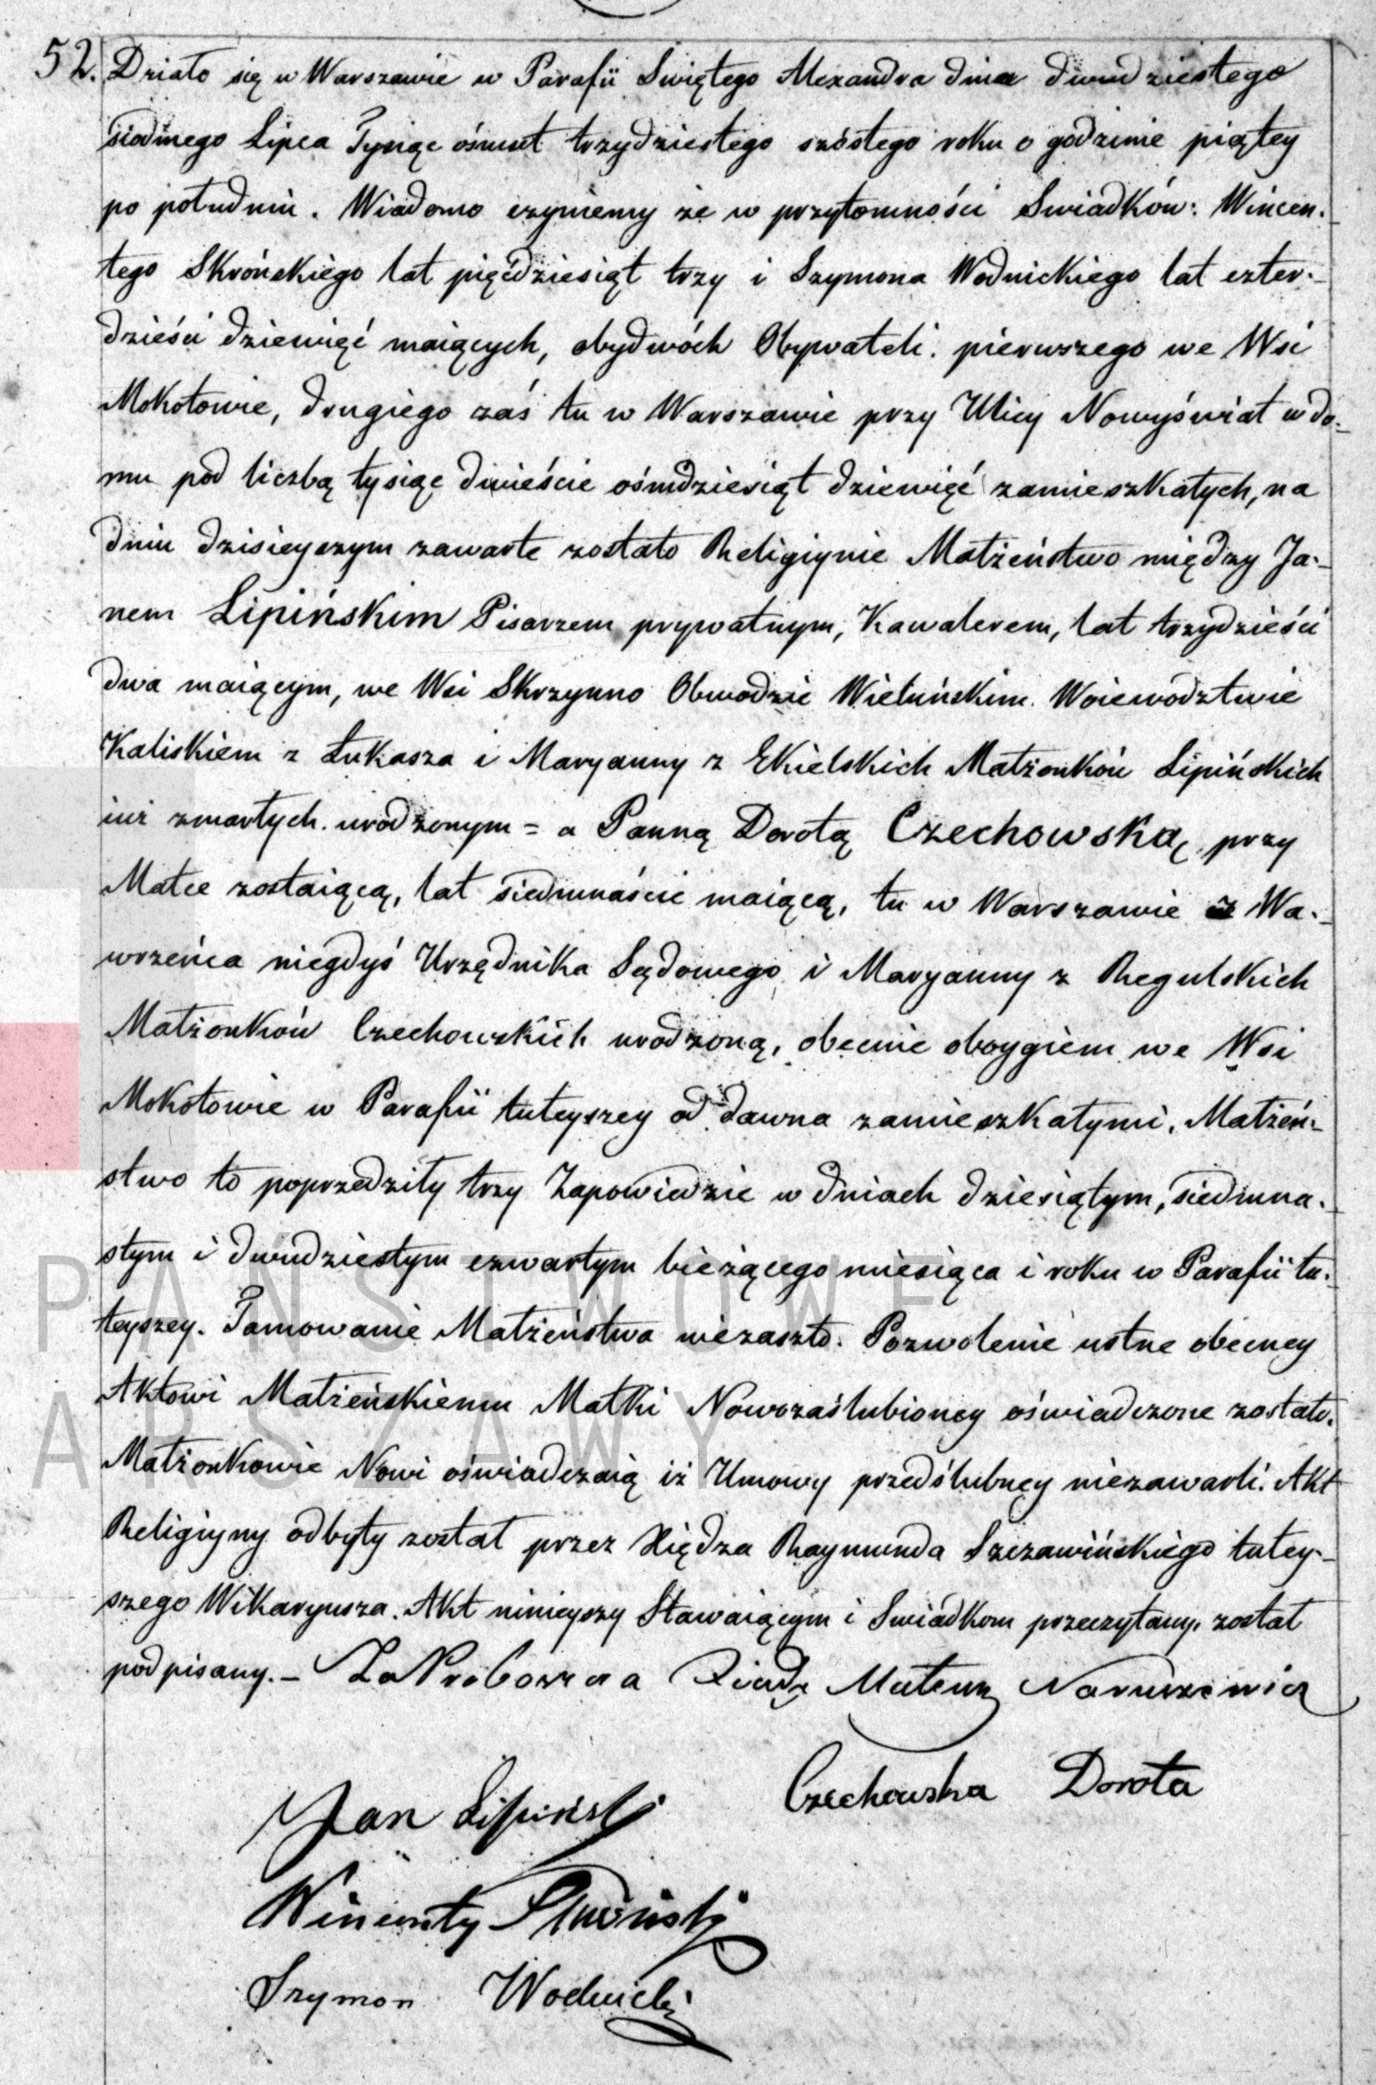 52. Działo się w Warszawie w Parafii Swiętego Alexandra dnia dwudziestego
siodmego Lipca Tysiąc ośmset trzydziestego szóstego roku o godzinie piątey
po południu. Wiadomo czyniemy że w przytomności Swiadków: Wincen-
tego Skrońskiego lat pięćdziesiąt trzy i Szymona Wodnickiego lat czter-
dzieści dziewięć maiących, obydwóch Obywateli. pierwszego we Wsi
Mokotowie, drugiego zaś tu w Warszawie przy Ulicy Nowyświat w do-
mu pod liczbą tysiąc dwieście ośmdziesiąt dziewięć zamieszkałych, na
dniu dzisieyszym zawarte zostało Religiynie Małżeństwo między Ja-
nem Lipińskim Pisarzem prywatnym, Kawalerem, lat trzydzieści
dwa maiącym, we Wsi Skrzynno Obwodzie Wieluńskim. Woiewodztwie
Kaliskiem z Łukasza i Maryanny z Ekielskich Małżonków Lipińskich
iuż zmarłych. urodzonym = a Panną Dorotą Czechowską, przy
Matce zostaiącą, lat siedmnaście maiącą, tu w Warszawie z Wa-
wrzeńca niegdyś Urzędnika Sądowego i Maryanny z Regulskich
Małżonków Czechowskich urodzoną, obecnie oboygiem we Wsi
Mokotowie w Parafii tuteyszey od dawna zamieszkałymi. Małżeń-
stwo to poprzedziły trzy Zapowiedzie w dniach dziesiątym, siedmna-
stym i dwudziestym czwartym bieżącego miesiąca i roku w Parafii tu-
teyszey. Tamowanie Małżeństwa niezaszło. Pozwolenie ustne obecney
Aktowi Małżeńskiemu Matki Nowozaślubioney oświadczone zostało.
Małżonkowie Nowi oświadczaią iż Umowy przedślubney niezawarli. Akt
Religiyny odbyty został przez Xiędza Raymunda Szczawińskiego tutey-
szego Wikaryusza. Akt ninieyszy Stawaiącym i Swiadkom przeczytany, został
podpisany. – Za Proboszcza Xiądz Mateusz Naruszewicz
Czechowska Dorota
Jan Lipiński
Wincenty
Szymon Wodnicki
PAŃSTWOWE
ARSZAWY